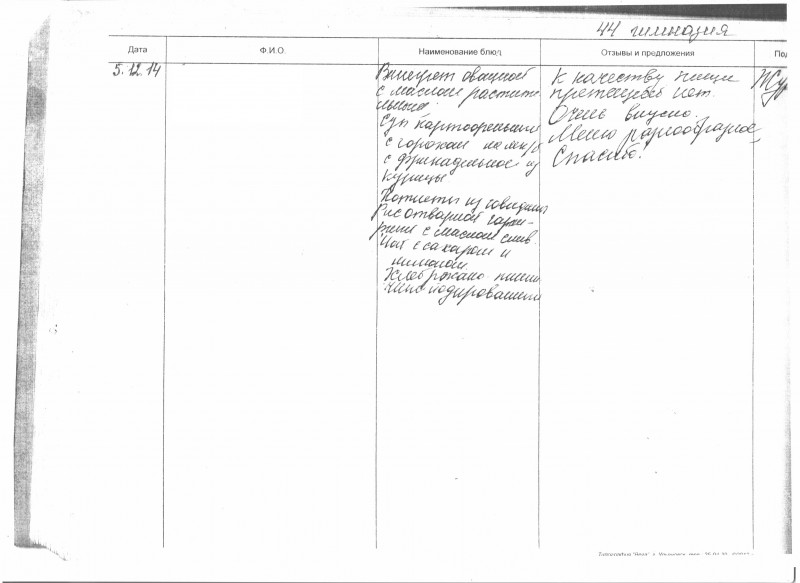 44 гимназия
Дата Ф.И.О. Наименование блюд Отзывы и предложения По
5.12.14
Винегрет овощной
с маслом растите
льным
Суп картофельный
с горохом
с фрикаделькой из
курицы
Котлеты из говядины
Рис отварной гарни-
рный с маслом слив.
Чай с сахаром и
лимоном.
Хлеб ржано пшени
чный йодированный
К качеству пищи
претензий нет.
Очень вкусно.
Меню разнообразное,
Спасибо!